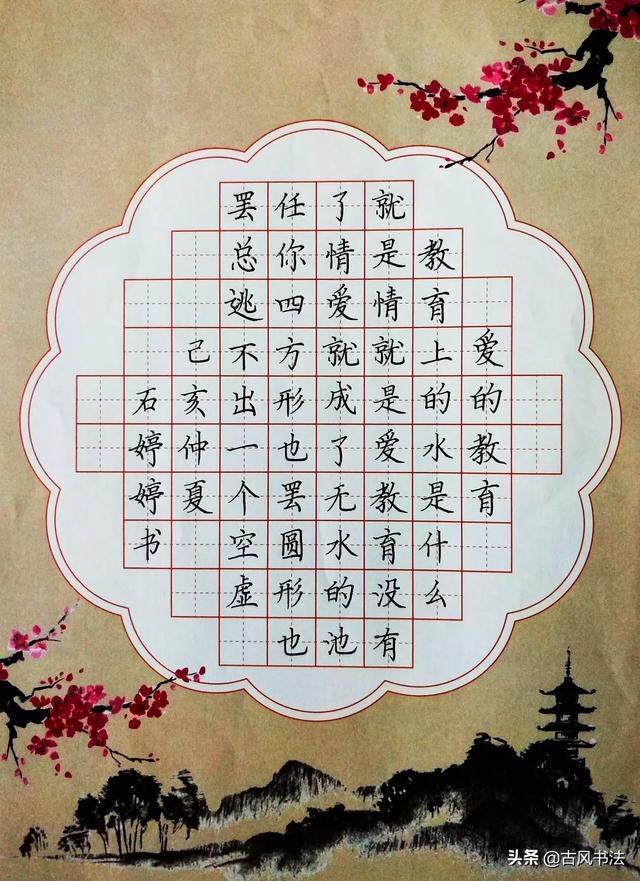 爱的教育
教育上的水是什么
就是情就是爱教育没有
了情爱就成了无水的池
任你四方形也罢圆形也
罢总逃不出一个空虚
己亥仲夏
石婷婷书
头条 @古风书法